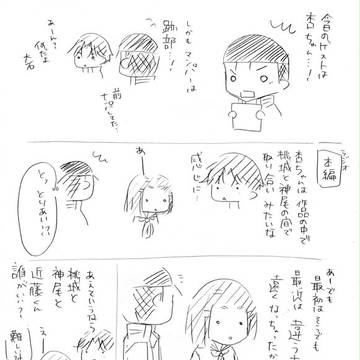 今日のゲストは
杏ちゃん…!
しかもマンスリーは
跡部…!
あーんて
低だな
大石
前
ラジオ
本編
杏ちゃんは作品の中で
桃城と神尾の間で
取り合いみたいな
感じに
あ
とっ
とりあい!?
あーでも
最初はそうでも
最近は違う
遠くなっちゃったか
あえていうなら
桃城と
神尾と
近藤くん
誰がいい?
え
難し